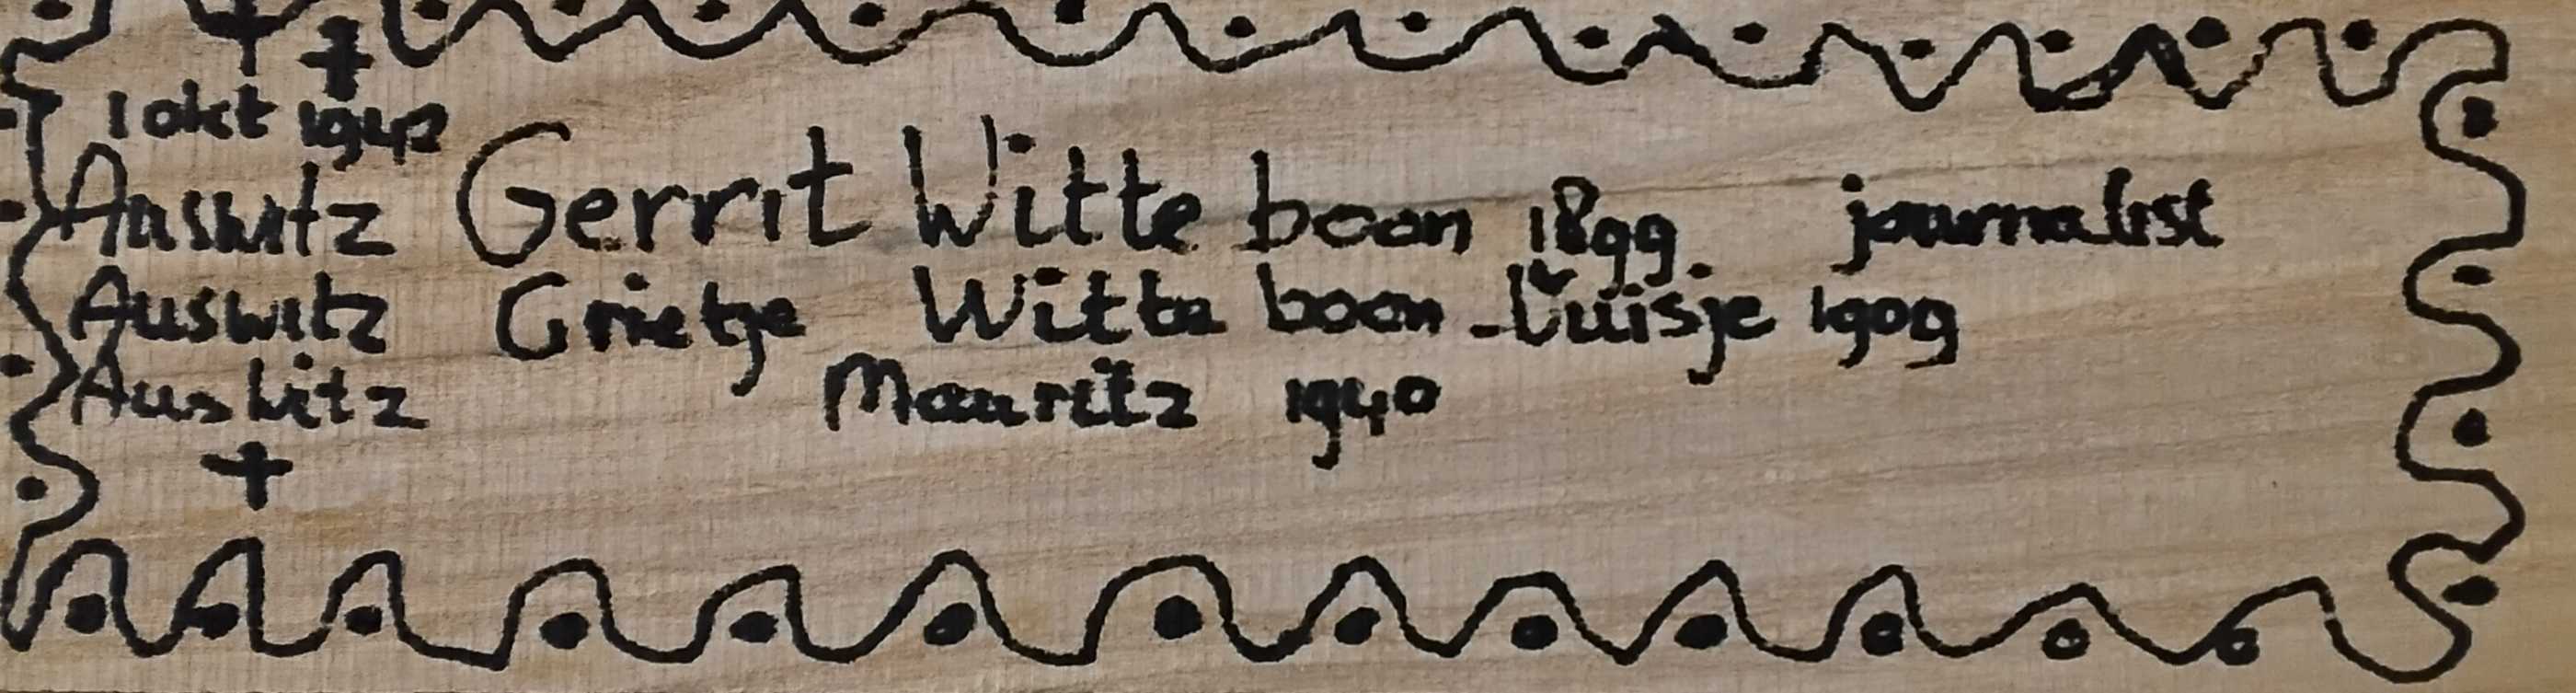 1 okt 1942
Auswitz Gerrit Witteboon 1899. journalist
Auswitz Grietje Witteboon - Luisje 1909
Auswitz Mauritz 1940